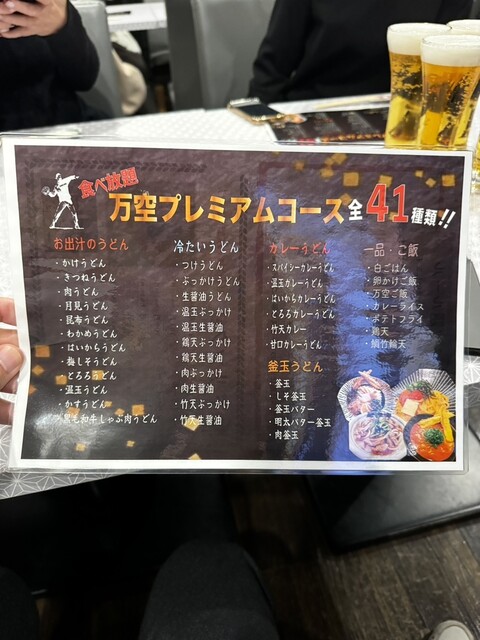 食べ放題
万空プレミアムコース全41種類!!
お出汁のうどん
・かけうどん
・きつねうどん
・肉うどん
・月見うどん
・昆布うどん
・わかめうどん
・はいからうどん
・梅しそうどん
・とろろうどん
・温玉うどん
・かすうどん
・黒毛和牛しゃぶ肉うどん
冷たいうどん
・つけうどん
・ぶっかけうどん
・生醤油うどん
・温玉ぶっかけ
・温玉生醤油
・鶏天ぶっかけ
・鶏天生醤油
・肉ぶっかけ
・肉生醤油
・竹天ぶっかけ
・竹天生醤油
カレーうどん
・スパイシーカレーうどん
・温玉カレーうどん
・はいからカレーうどん
・とろろカレーうどん
・竹天カレー
・甘口カレーうどん
釜玉うどん
・釜玉
・しそ釜玉
・釜玉バター
・明太バター釜玉
・肉釜玉
一品・ご飯
・白ごはん
・卵かけご飯
・万空ご飯
・カレーライス
・ポテトフライ
・鶏天
・鯛竹輪天